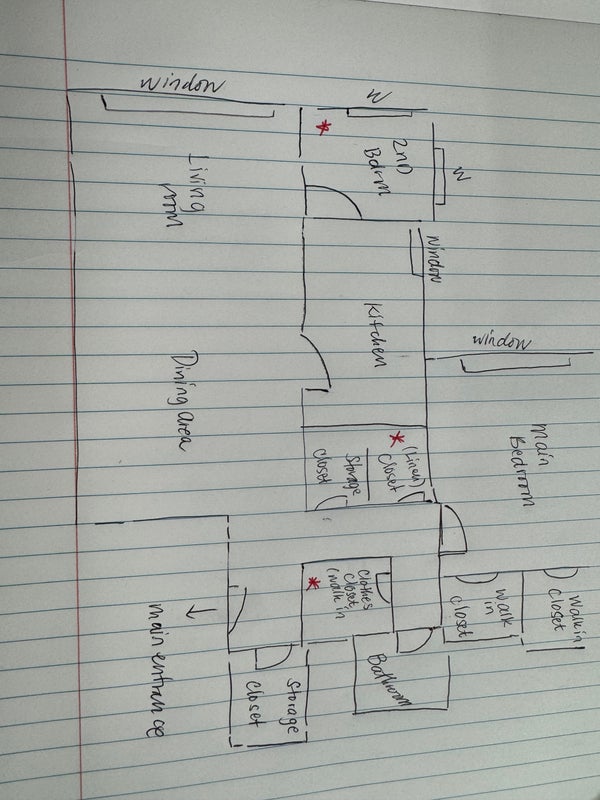 window
W
*
2ND
Bdrm
W
Living
room
window
Kitchen
window
Dining area
Main
Bedroom
*
(Linen)
Closet
Storage
Closet
Clothes
Closet
(walk in
*
walk
in
closet
walk in
closet
Main entrance
Bathroom
Storage
Closet